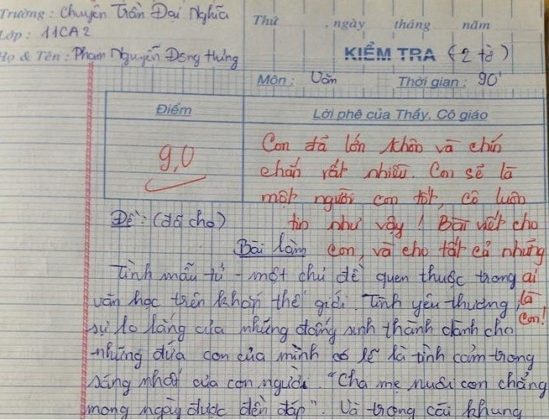 Trường : Chuyên Trần Đại Nghĩa
Thứ , ngày tháng năm
Lớp : 11CA2
KIỂM TRA (2 tờ)
Họ & Tên : Phạm Nguyễn Đông Hưng
Môn : Văn Thời gian : 90'
Điểm
Lời phê của Thầy, Cô giáo
9,0
Con đã lớn khôn và chín
chắn rất nhiều. Con sẽ là
một người con tốt, cô luôn
tin như vậy ! Bài viết cho
con, và cho tất cả những
ai
là
con!
Đề : (đã cho)
Bài làm
Tình mẫu tử - một chủ đề quen thuộc trong
văn học trên khắp thế giới. Tình yêu thương,
sự lo lắng của những đấng sinh thành dành cho
những đứa con của mình có lẽ là tình cảm trong
sáng nhất của con người. "Cha mẹ nuôi con chẳng
mong ngày được đền đáp". Và trong cái khung